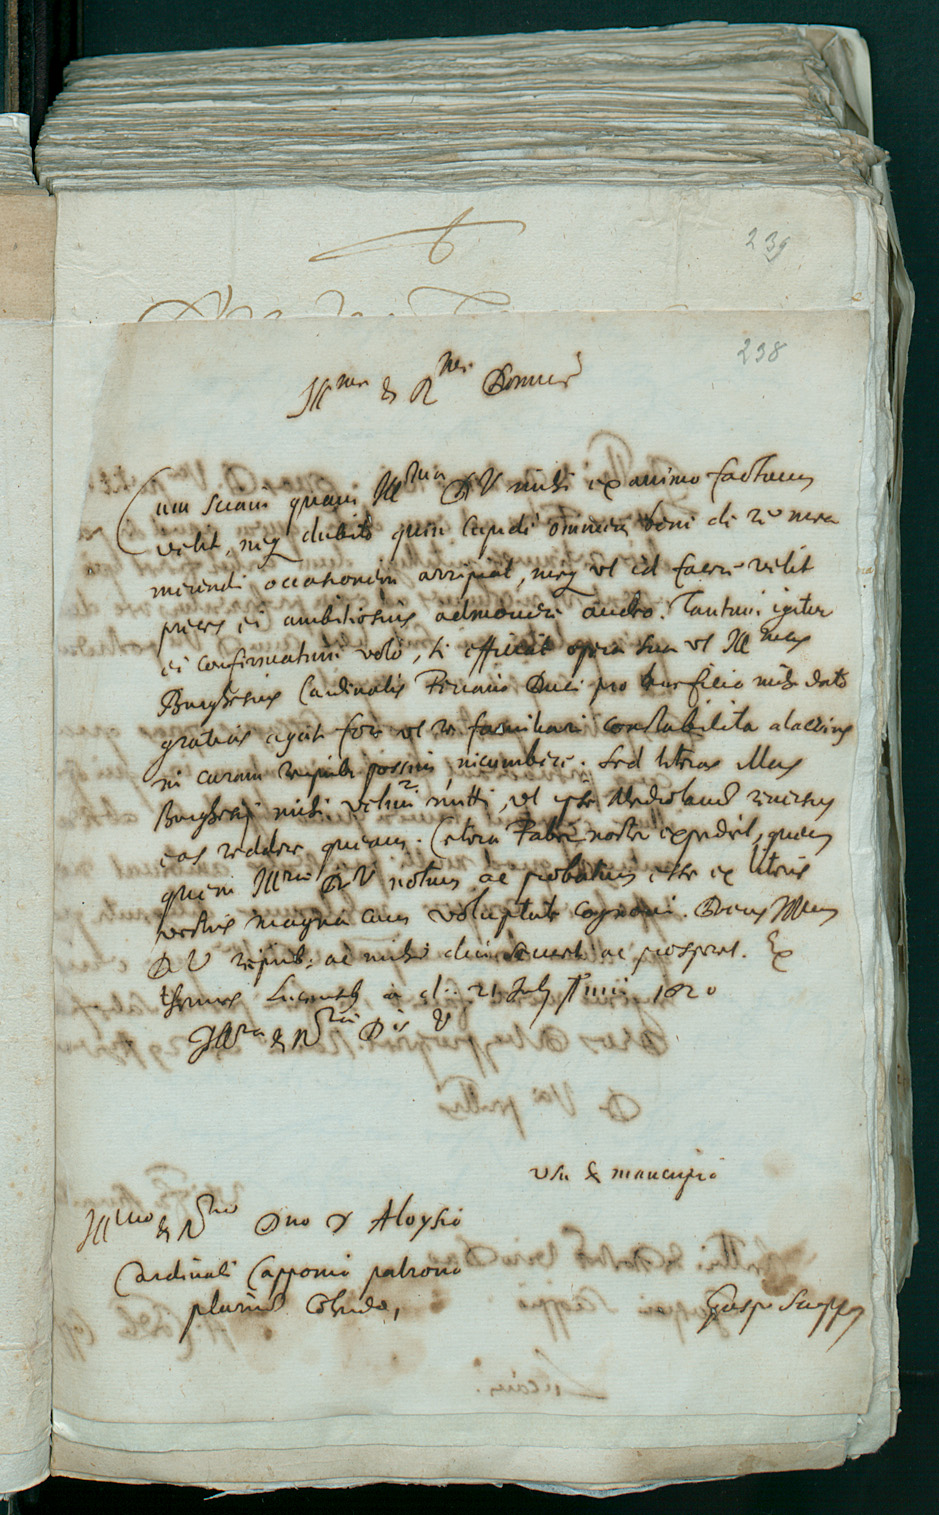 239
238
Ill.me & R.me Domine
Cum sciam quam Ill.ma D V mihi ex animo factum
velit, neq dubito quin cupide omnem boni de me
merendi occasionem arripiat, neq vt id facere velit
pluribus ambitiosius admonere audeo. Tantum igitur
ei confirmatum volo, si efficiat opera sua vt Ill.mus
Burghesius Cardinalis Duci pro beneficio mihi dato
gratias agat fore vt re familiari constabilita alacrius
in curam reipub possim incumbere. Sed literas Illmi
Burghesij mihi velim mitti, vt ipse Mediolanum reversus
eas reddere queam. Cetera Faber noster expediet, quem
quem Ill.mae D V notum ac probatum esse ex literis
vestris magna cum voluptate cognovi. Deus Illmam
D V reipub: ac mihi diu servet ac prosperet. Ex
thermis Lucensib a d. 21 Julij 1620
Ill.mae & R.mae D is V
vsu & mancipio
Ill.mo & R.mo Dno D Aloysio
Cardinali Capponio patrono
plurimum colendo,
Gasp Sciopp